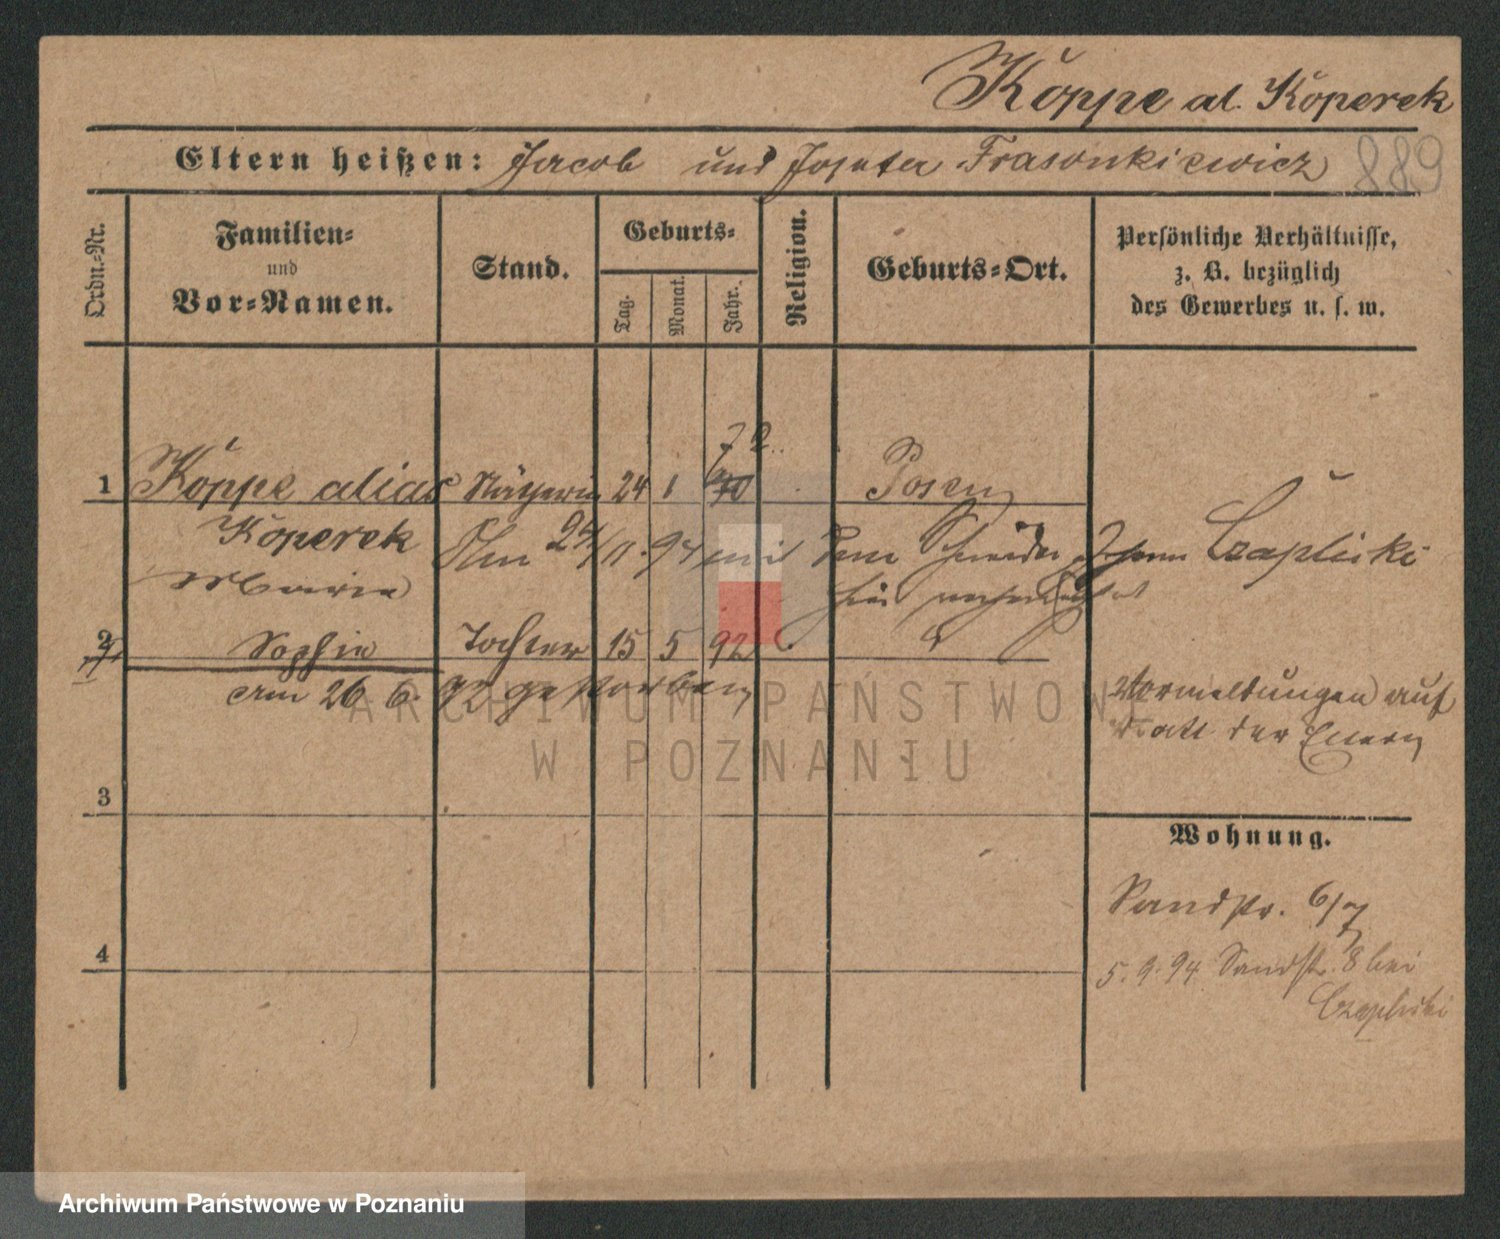 Köppe al. Koperek
Eltern heißen: Jacob und Josefa Frasonkiewicz 889
Ordn.-Nr.
Familien-
und
Vor-Namen.
Stand.
Geburts-
Tag.
Monat.
Jahr.
Religion.
Geburts-Ort.
Persönliche Verhältnisse,
z. B. bezüglich
des Gewerbes u. s. w.
72
1 Köppe alias Nätherin 24 1 70 Posen
Koperek Am 24/11.94 mit dem Schneider Johann Czaplicki
Maria hier
2 Sophie Tochter 15 5 92
am 26 6. 92 gestorben
Vormeldungen auf
Blatt der Eltern
3
Wohnung.
Sandstr. 6/7
4
5.9.94 Sandstr. 8 bei
Czaplicki
ARCHIWUM PAŃSTWOWE
W POZNANIU
Archiwum Państwowe w Poznaniu